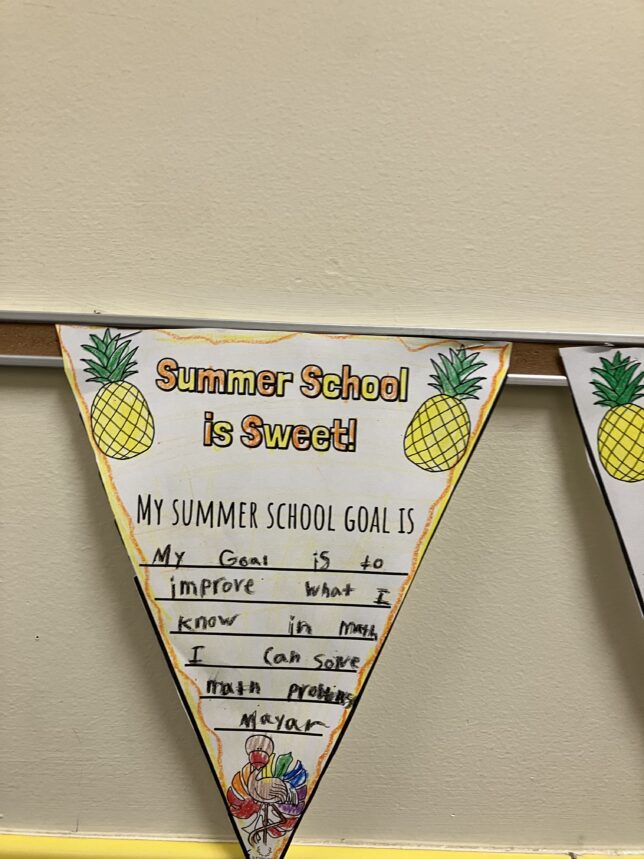 Summer School
is Sweet!
MY SUMMER SCHOOL GOAL IS
My Goal is to
improve what I
know in math
I can solve
math problems
Mayar